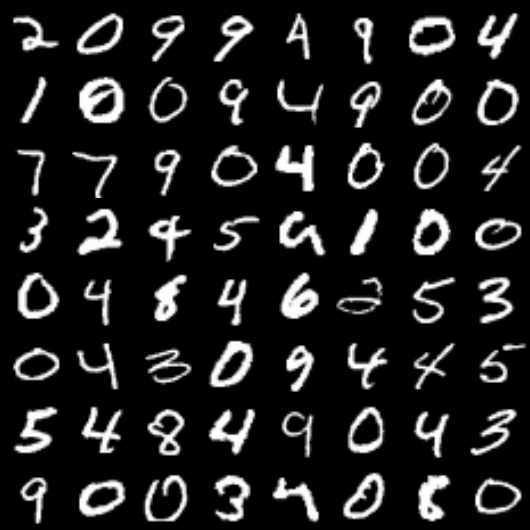 2 0 9 9 4 9 0 4
1 0 0 9 4 9 0 0
7 7 9 0 4 0 0 4
3 2 4 5 9 1 0 0
0 4 8 4 6 2 5 3
0 4 3 0 9 4 4 5
5 4 8 4 9 0 4 3
9 0 0 3 4 0 8 0